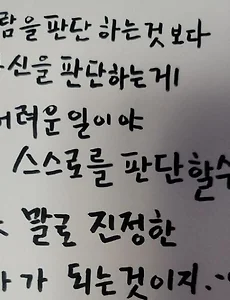 람을 판단하는것 보다
신을 판단하는게
려운일이야
스스로를 판단할수
말로 진정한
가 되는것이지..